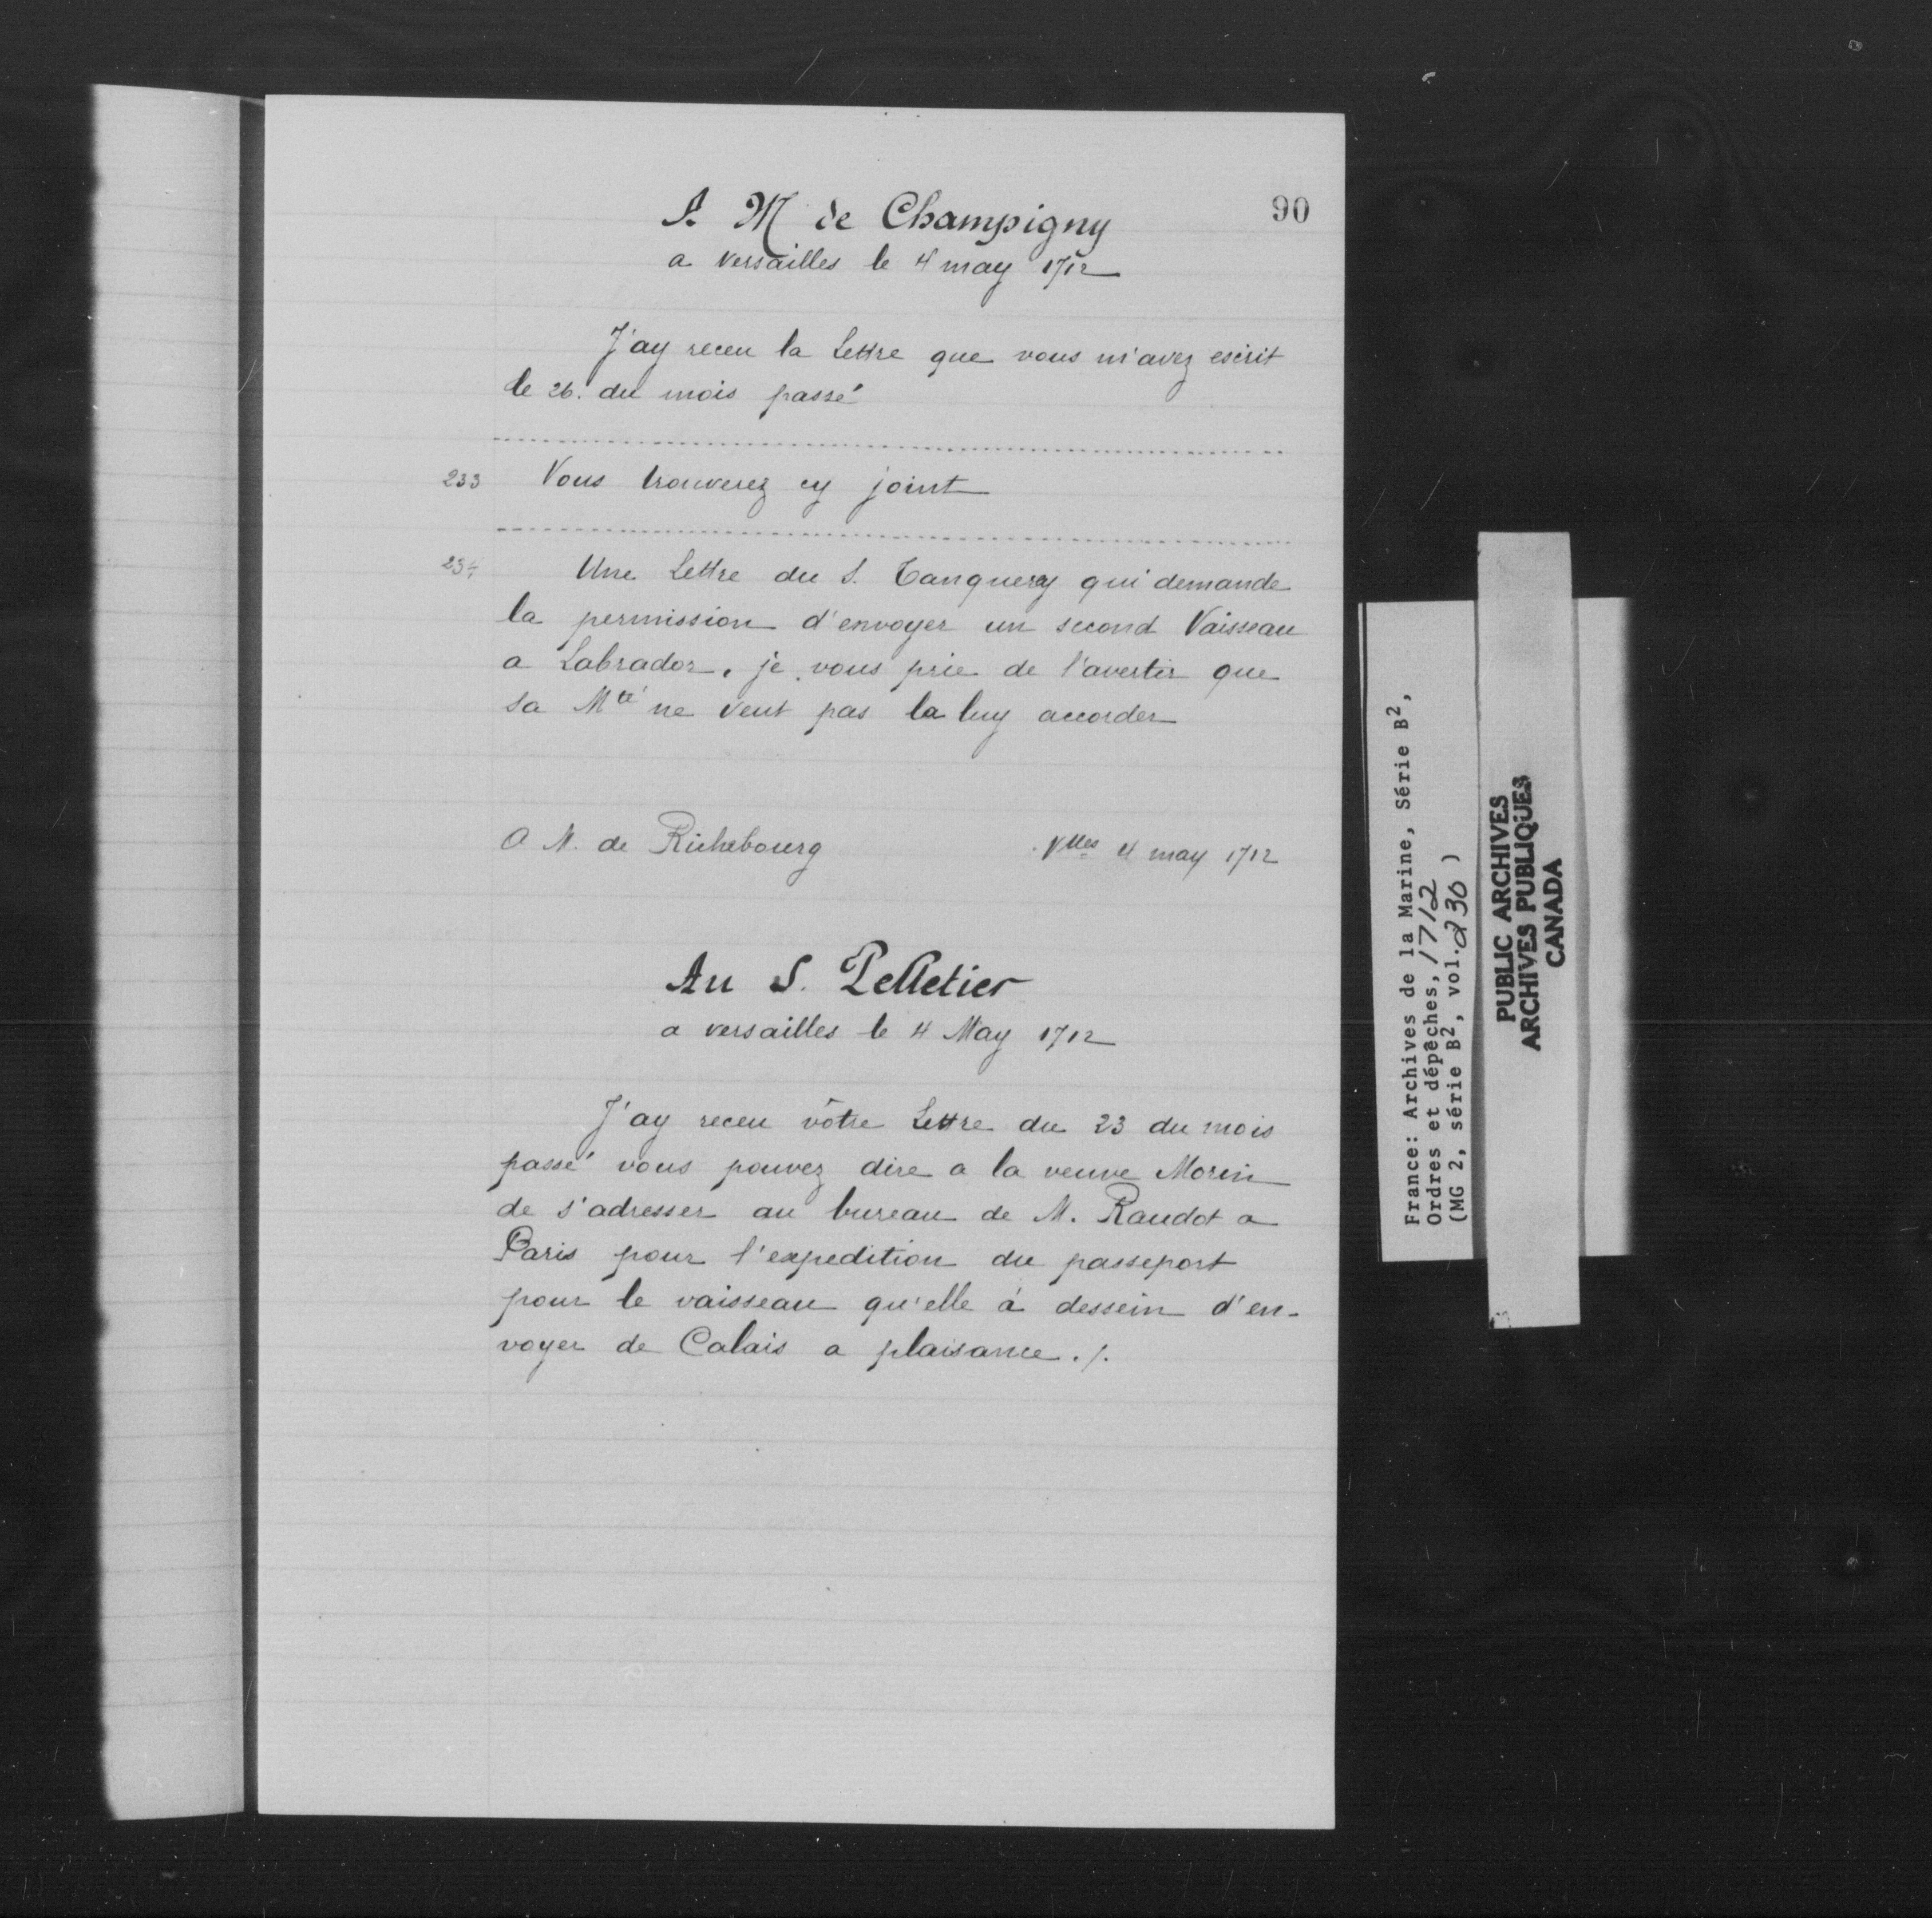 90
A M de Champigny
a versailles le 4 may 1712
J'ay receu la Lettre que vous m'avez escrit
le 26. du mois passé
233 Vous trouverez cy joint
234 Une Lettre du S. Tanquery qui demande
la permission d'envoyer un second Vaisseau
a Labrador, je vous prie de l'avertir que
sa Mté ne veut pas la luy accorder
A M. de Richebourg Vlles 4 may 1712
Au S. Pelletier
a versailles le 4 May 1712
J'ay receu vôtre Lettre du 23 du mois
passé vous pouvez dire a la veuve Morin
de s'adresser au bureau de M. Raudot a
Paris pour l'expedition du passeport
pour le vaisseau qu'elle à dessein d'en-
voyer de Calais a plaisance ./.
France: Archives de la Marine, Série B2,
Ordres et dépêches, 1712
(MG 2, série B2, vol. 230)
PUBLIC ARCHIVES
ARCHIVES PUBLIQUES
CANADA